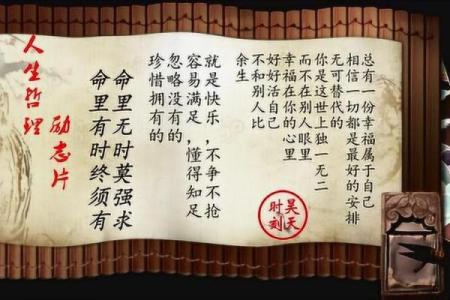 总有一份幸福属于自己
相信一切都是最好的安排
无可替代的
你是这世上独一无二
而不在别人眼里
幸福在你的心里
好好活自己
不和别人比
余生
昊天
时刻
就是快乐，不争不抢
容易满足，懂得知足
忽略没有的
珍惜拥有的
命里无时莫强求
命里有时终须有
励志片
人生哲理